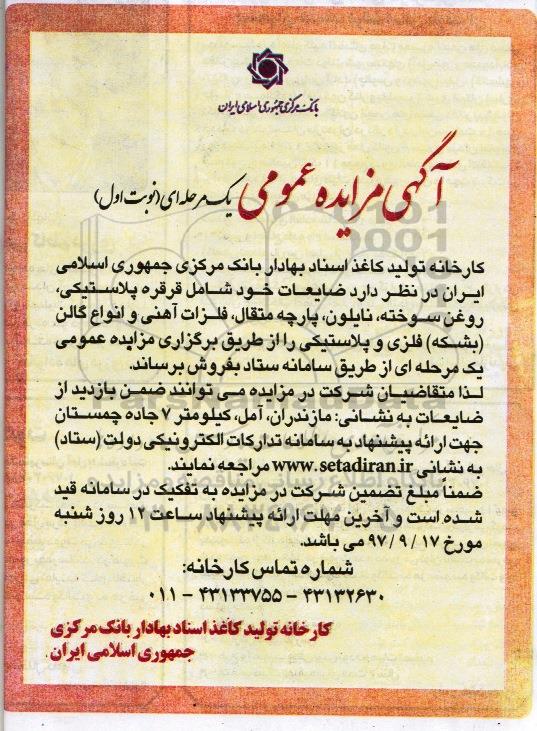 بانک مرکزی جمهوری اسلامی ایران
آگهی مزایده عمومی یک مرحله ای (نوبت اول)
کارخانه تولید کاغذ اسناد بهادار بانک مرکزی جمهوری اسلامی
ایران در نظر دارد ضایعات خود شامل قرقره پلاستیکی،
روغن سوخته، نایلون، پارچه متقال، فلزات آهنی و انواع گالن
(بشکه) فلزی و پلاستیکی را از طریق برگزاری مزایده عمومی
یک مرحله ای از طریق سامانه ستاد بفروش برساند.
لذا متقاضیان شرکت در مزایده می توانند ضمن بازدید از
ضایعات به نشانی: مازندران، آمل، کیلومتر ۷ جاده چمستان
جهت ارائه پیشنهاد به سامانه تدارکات الکترونیکی دولت (ستاد)
به نشانی www.setadiran.ir مراجعه نمایند.
ضمناً مبلغ تضمین شرکت در مزایده به تفکیک در سامانه قید
شده است و آخرین مهلت ارائه پیشنهاد ساعت ۱۲ روز شنبه
مورخ ۹۷/۹/۱۷ می باشد.
شماره تماس کارخانه:
۰۱۱ - ۴۳۱۳۳۷۵۵ - ۴۳۱۳۲۶۳۰
کارخانه تولید کاغذ اسناد بهادار بانک مرکزی
جمهوری اسلامی ایران